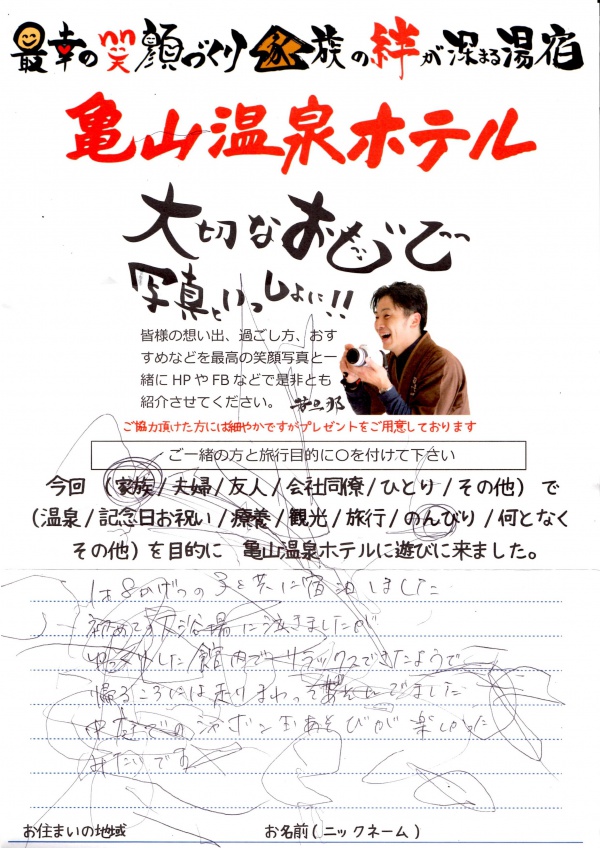 最幸の笑顔づくり家族の絆が深まる湯宿
亀山温泉ホテル
大切なおもいで
写真といっしょに!!
皆様の想い出、過ごし方、おす
すめなどを最高の笑顔写真と一
緒に HP や FB などで是非とも
紹介させてください。 若旦那
ご協力頂けた方には細やかですがプレゼントをご用意しております
ご一緒の方と旅行目的に〇を付けて下さい
今回 (家族/夫婦/友人/会社同僚/ひとり/その他) で
(温泉/記念日お祝い/療養/観光/旅行/のんびり/何となく
その他) を目的に 亀山温泉ホテルに遊びに来ました。
1才8ヶげつの子と共に宿泊しました
初めての大浴場に泣きましたが
した館内でリラックスできたようで
帰るころには走りまわってあそんでました
中庭でのシャボン玉あそびが楽しかった
みたいです
お住まいの地域
お名前(ニックネーム)